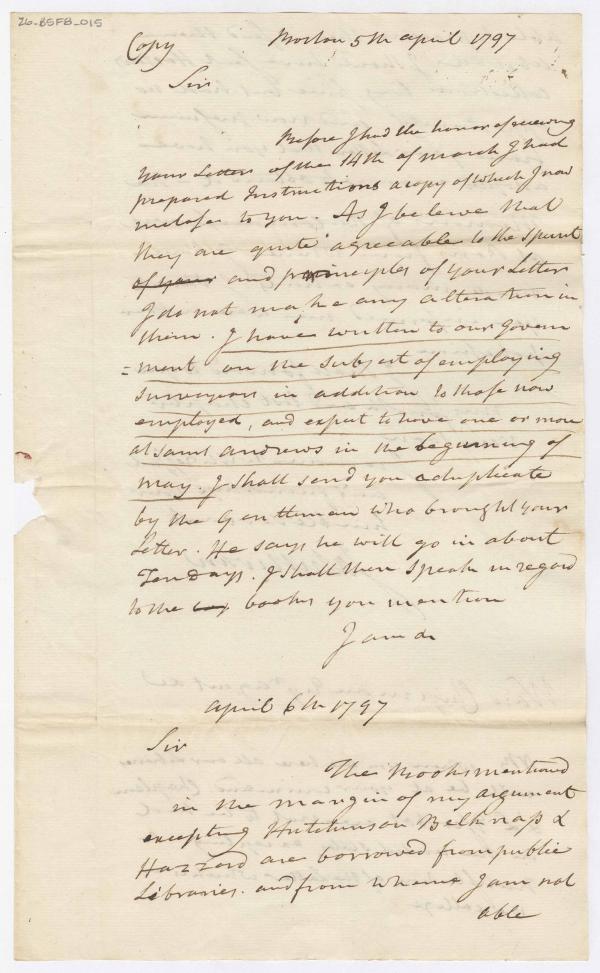 26-B5FB-015
Copy Boston 5th april 1797
Sir
Before I had the honor of receiving
your Letters of the 14th of march I had
prepared Instructions a copy of which I now
inclose to you. As I beleive that
they are quite agreeable to the spirit
of your and principles of your Letter
I do not make any alteration in
them. I have written to our Govern
= ment on the subject of employing
surveyors in addition to those now
employed, and expect to have one or more
at saint andrews in the beginning of
may. I shall send you a duplicate
by the Gentleman who brought your
Letter. He says he will go in about
Ten days. I shall then speak in regard
to the books you mention
I am &
april 6th 1797
Sir
The Books mentioned
in the margin of my argument
excepting Hutchinson Belknap &
Hazzard are borrowed from public
Libraries. and from whence I am not
able